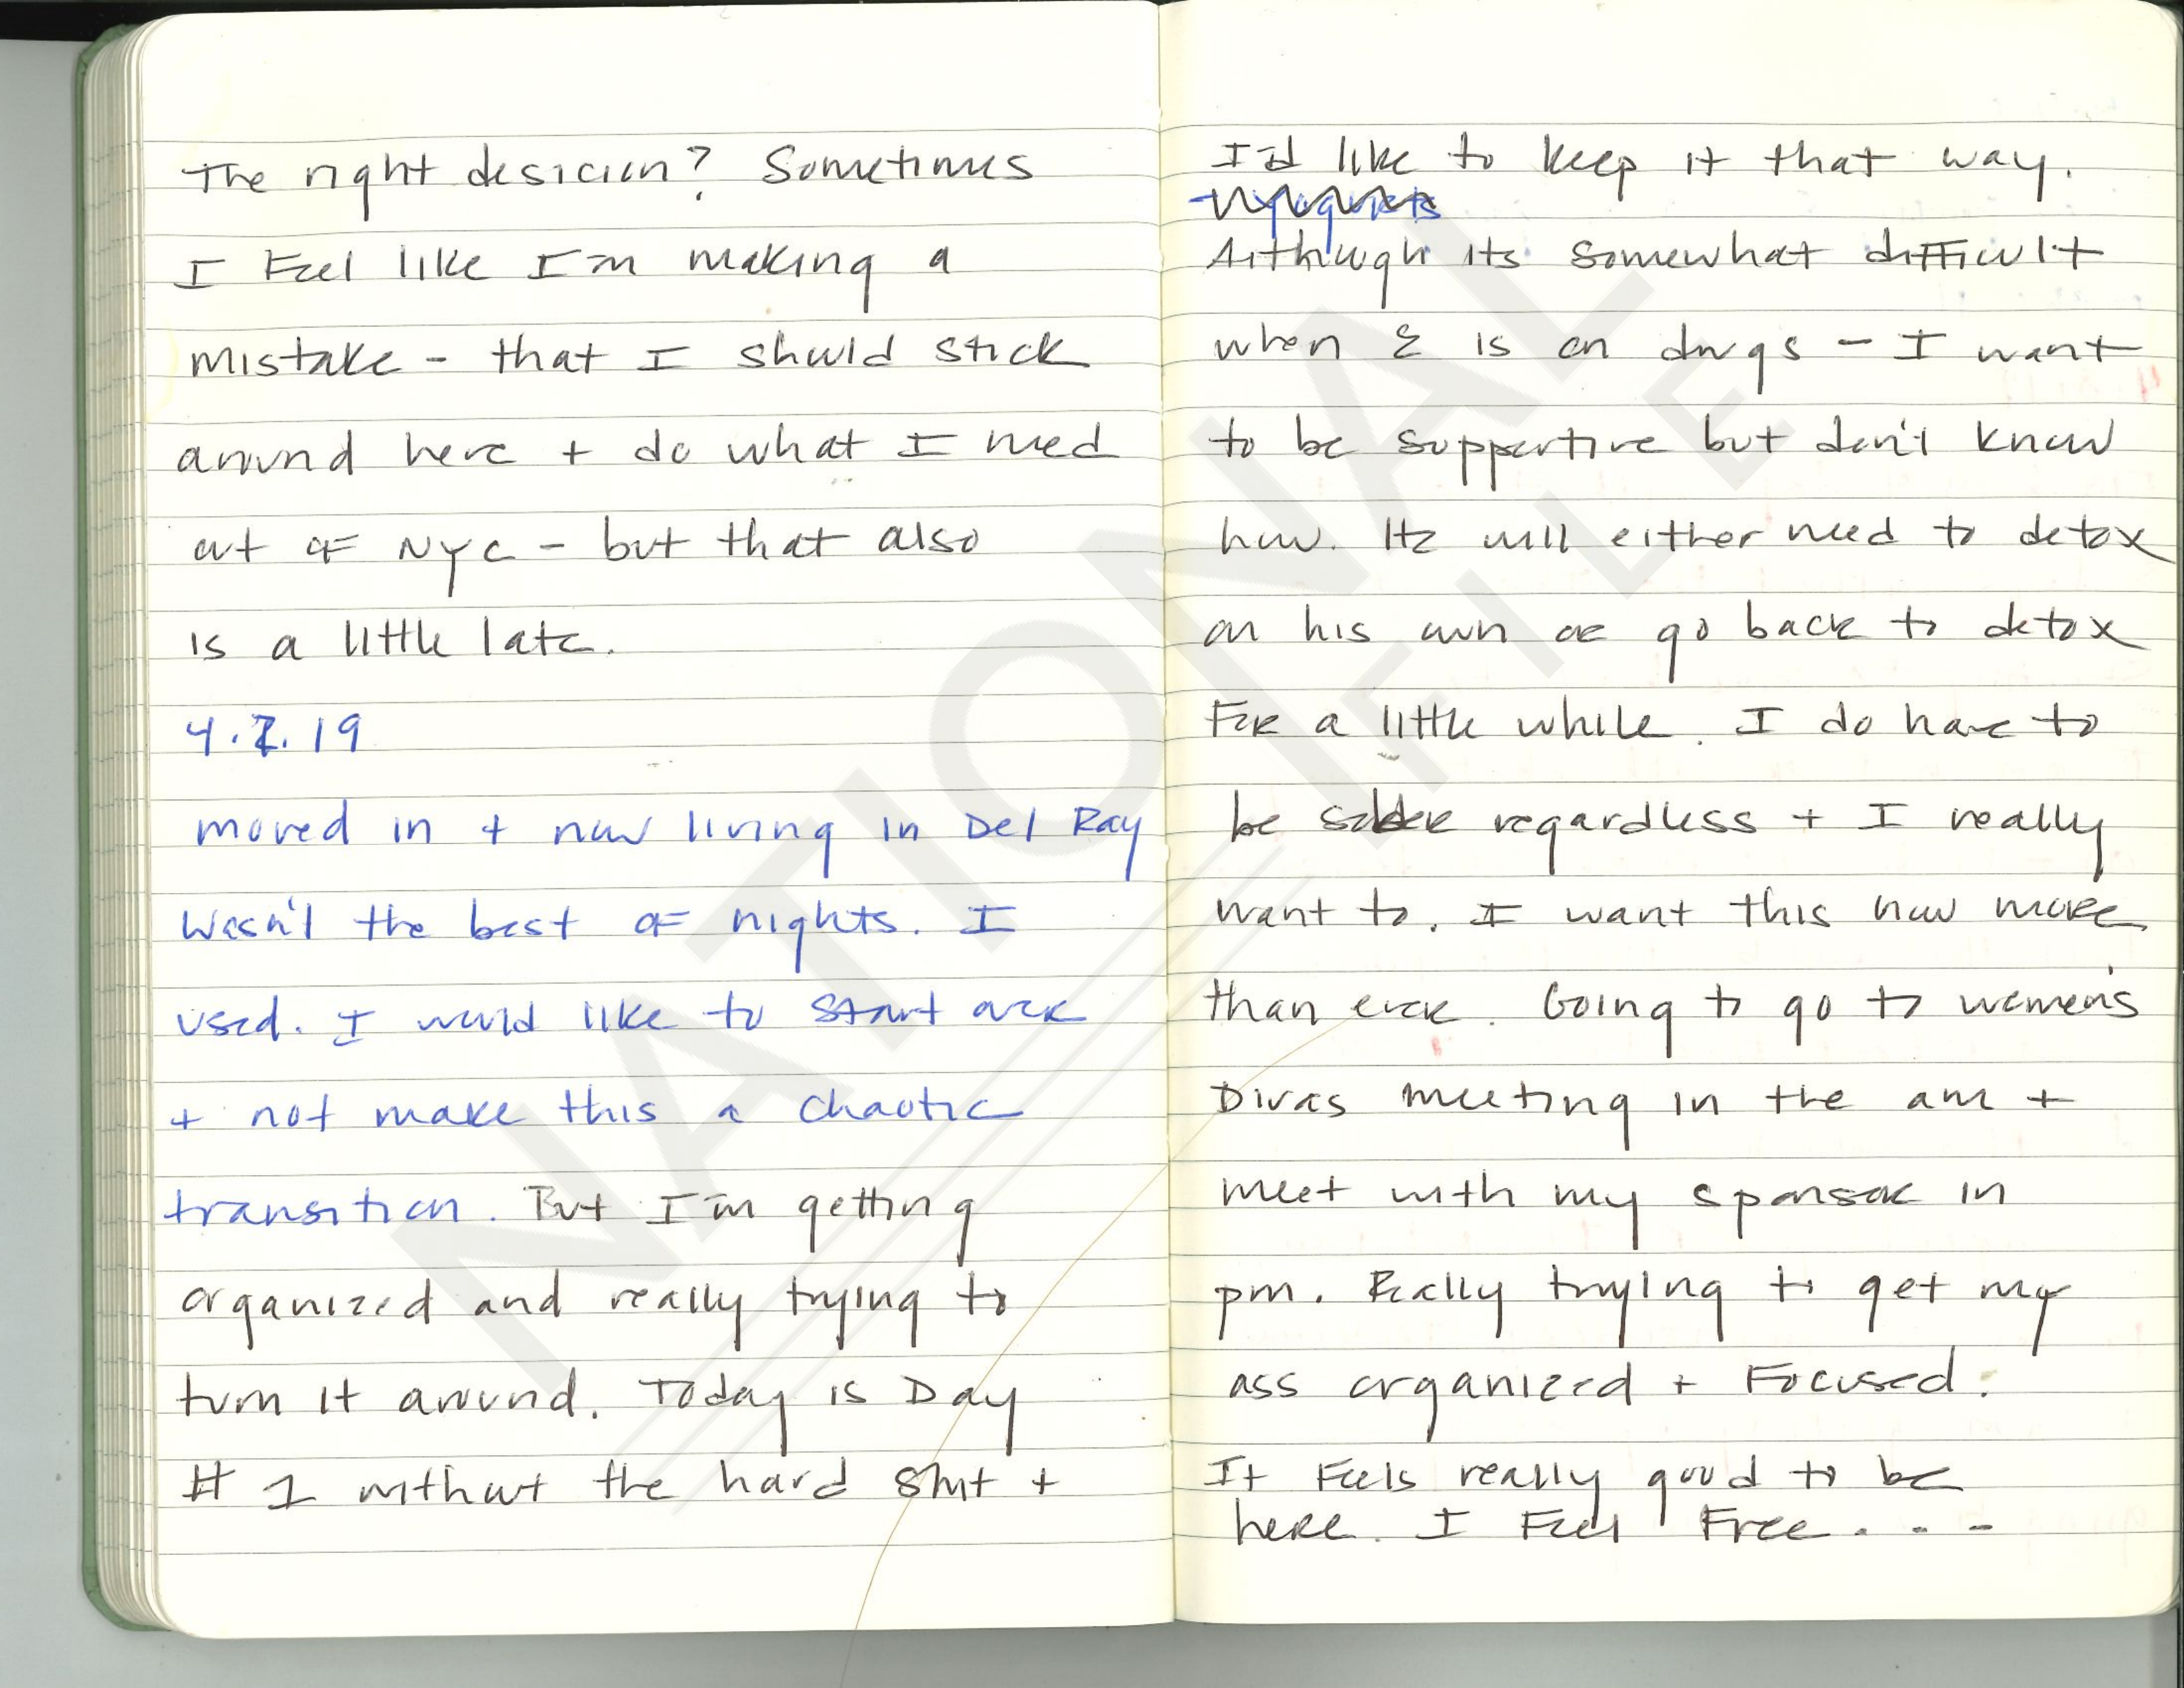 The right desicion? Sometimes
I Feel like I'm making a
mistake - that I should stick
around here + do what I need
out of NYC - but that also
is a little late.
4.7.19
moved in + now living in Del Ray
Wasn't the best of nights. I
used. I would like to start over
+ not make this a chaotic
transition. But I'm getting
organized and really trying to
turn it around. Today is Day
# 1 without the hard shit +
I'd like to keep it that way.
Although its somewhat difficult
when E is on drugs - I want
to be supportive but don't know
how. He will either need to detox
on his own or go back to detox
For a little while. I do have to
be sober regardless + I really
want to. I want this now more
than ever. Going to go to women's
Divas meeting in the am +
meet with my sponsor in
pm. Really trying to get my
ass organized + Focused.
It Feels really good to be
here. I Feel Free...
NATIONAL
FILE